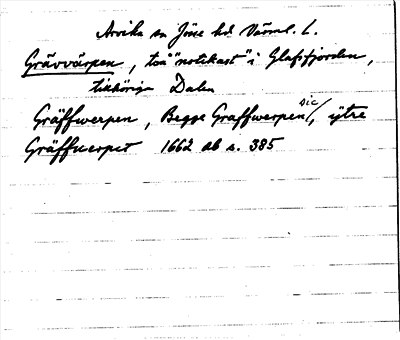 Arvika sn Jösse hd Värml. L.
Grävvärpen, två "notkast" i Glafsfjorden,
tillhöriga Dalen
Gräffwerpen, Begge Graffwerpen sic/, ÿtre
Gräffuerpet 1662 ab s. 385